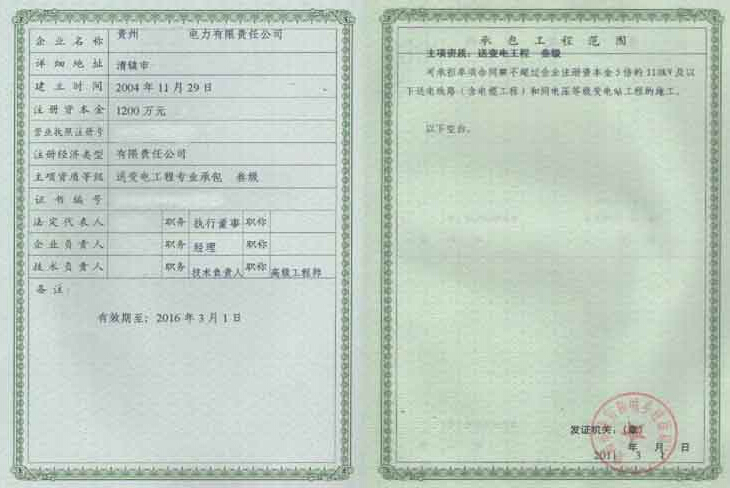 企业名称 贵州 电力有限责任公司
详细地址 清镇市
建立时间 2004年11月29日
注册资本金 1200万元
营业执照注册号
注册经济类型 有限责任公司
主项资质等级 送变电工程专业承包 叁级
证书编号
法定代表人 职务 执行董事 职称
企业负责人 职务 经理 职称
技术负责人 职务 技术负责人 职称 高级工程师
备注:
有效期至: 2016年3月1日
承包工程范围
主项资质: 送变电工程 叁级
可承担单项合同额不超过企业注册资本金5倍的110kV及以
下送电线路(含电缆工程)和同电压等级变电站工程的施工。
以下空白。
发证机关: (章)
2011年3月1日